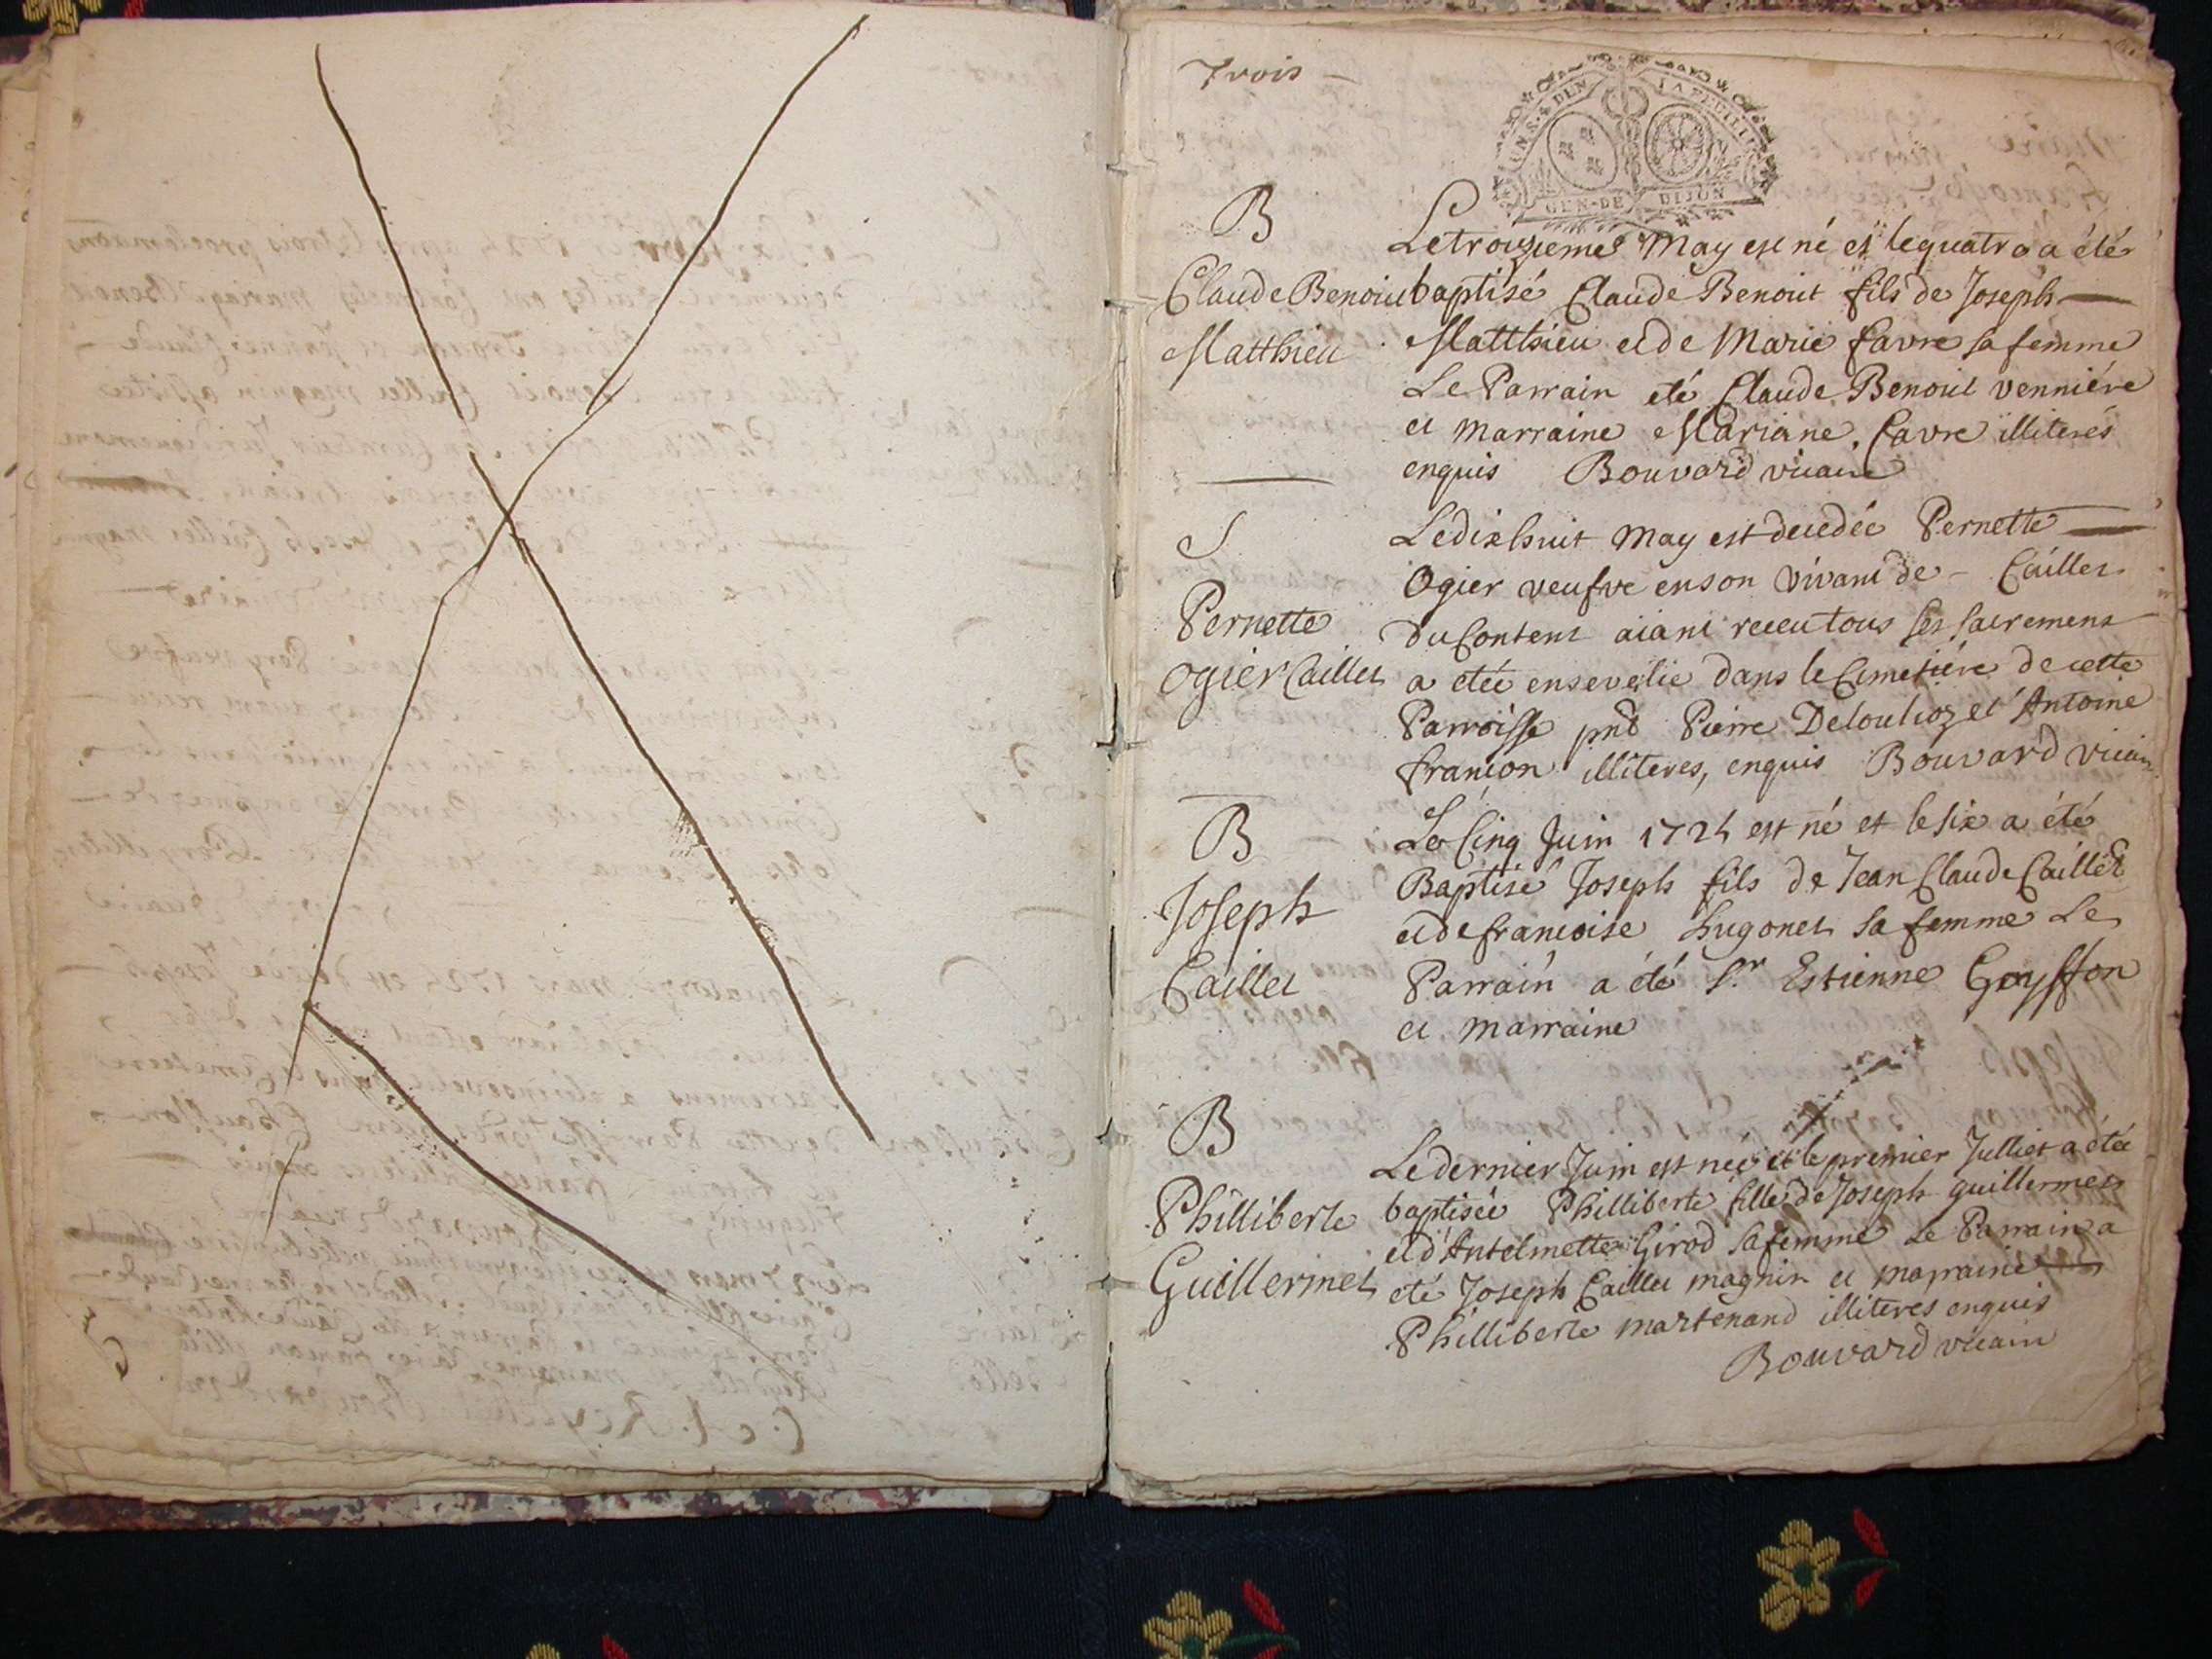 Trois
UNS. 4 DEN LA FEUILLE
GEN. DE DIJON
B
Claude Benoit
Matthieu
Le trouzieme May est né et le quatre a été
baptisé Claude Benoit fils de Joseph
Matthieu et de Marie favre sa femme
Le Parrain eté Claude Benoit venniére
et marraine Mariane favre illiterés
enquis Bouvard vicaire
S
Pernette
ogier Caillet
Le dixhuit May est decedée Pernette
Ogier veufve en son vivant de - Caillet
du Content aiant receu tous ses sacremens
a etée ensevelie dans le Cimetiére de cette
Parroisse pnt Pierre Deloulioz et Antoine
françon illiteres, enquis Bouvard vicair
B
Joseph
Caillet
Le Cinq Juin 1724 est né et le six a été
Baptisé Joseph fils de Jean Claude Caillet
et de francoise hugonet sa femme Le
Parrain a été Sr. Estienne Goyffon
et marraine
B
Philliberte
Guillermet
Le dernier Juin est née et le premier Julliet a étée
baptisée Philliberte fille de Joseph guillermet
et d'Antelmette Girod sa femme Le Parrain a
eté Joseph Caillet magnin et marraine
Philliberte martenand illiteres enquis
Bouvard vicair